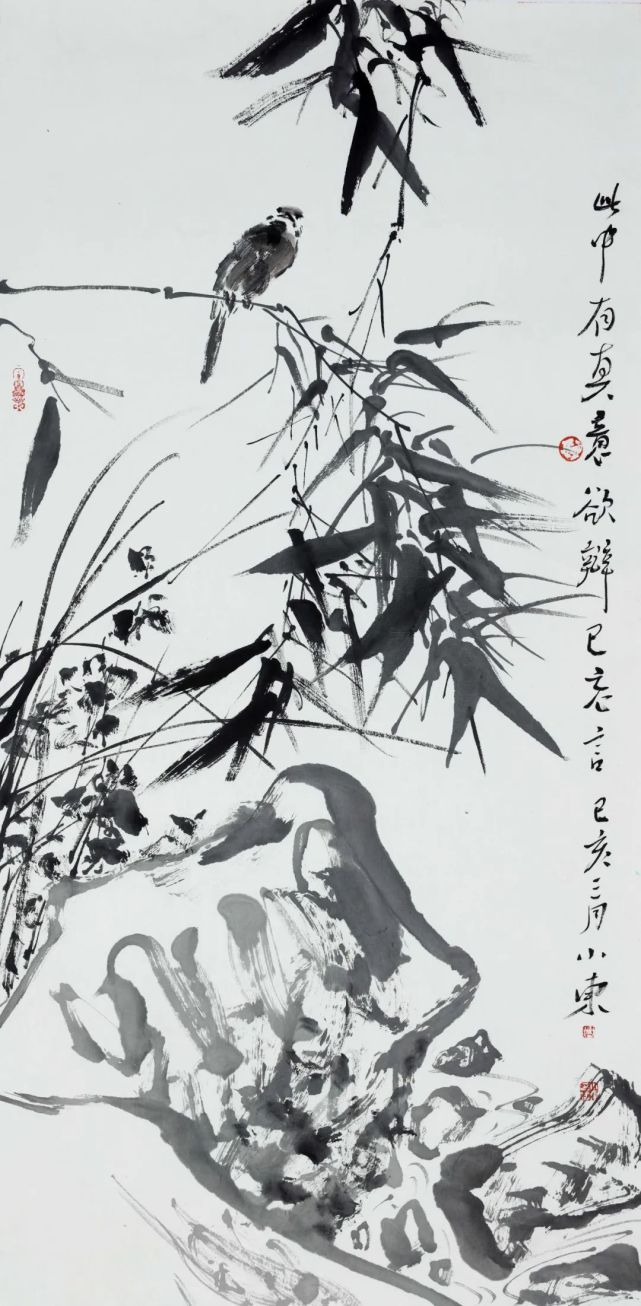 此中有真意欲辨已忘言己亥三月小東